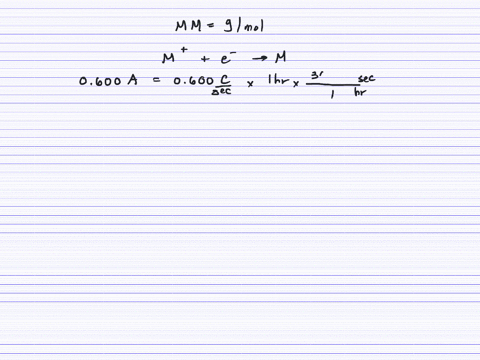 MM = g/mol
M⁺ + e⁻ → M
0.600 A = 0.600 C/sec × 1hr × 3 sec/1 hr